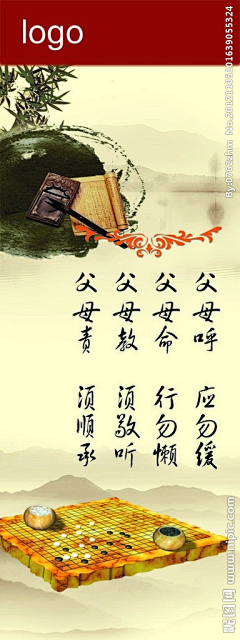 logo
父母呼 应勿缓
父母命 行勿懒
父母教 须敬听
父母责 须顺承
昵图网 www.nipic.com